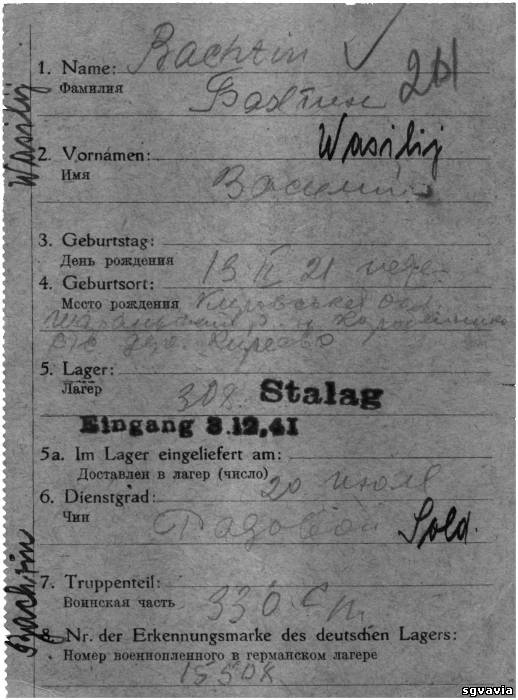 Bachtin
1. Name:
Фамилия
Бахтин 201
Wasilij
2. Vornamen: Wasilij
Имя
Василий
3. Geburtstag:
День рождения
13 II 21
4. Geburtsort:
Место рождения
с/с дер.
5. Lager:
Лагер
308. Stalag
Eingang 3.12.41
5a. Im Lager eingeliefert am:
Доставлен в лагер (число)
20 июля
6. Dienstgrad:
Чин
Рядовой Sold.
Bachtin
7. Truppenteil:
Воинская часть
330
8. Nr. der Erkennungsmarke des deutschen Lagers:
Номер военнопленного в германском лагере
sgvavia